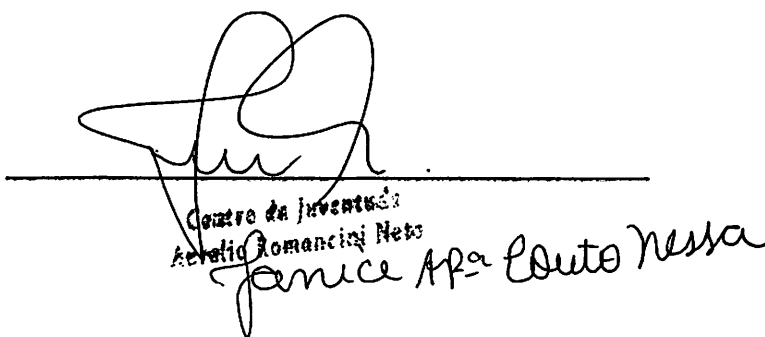 Centro da Juventude
Aurelio Romancini Neto
Janice Apª Couto Nessa